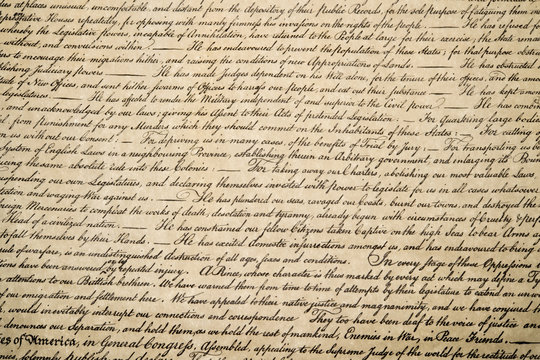 at places unusual, uncomfortable, and distant from the depository of their Public Records, for the sole purpose of fatiguing them
Houses repeatedly, for opposing with manly firmness his invasions on the rights of the people. — He has refused for
whereby the Legislative powers, incapable of Annihilation, have returned to the People at large for their exercise; the State remain
without, and convulsions within. — He has endeavoured to prevent the population of these States; for that purpose obstruc
to encourage their migrations hither, and raising the conditions of new Appropriations of Lands. — He has obstructed
blishing Judiciary powers. — He has made Judges dependent on his Will alone, for the tenure of their offices, and the amou
of New Offices, and sent hither swarms of Officers to harrass our People, and eat out their substance. — He has kept among
legislatures. — He has affected to render the Military independent of and superior to the Civil power. — He has combin
and unacknowledged by our laws; giving his Assent to their Acts of pretended Legislation: — For Quartering large bodies
from punishment for any Murders which they should commit on the Inhabitants of these States: — For cutting of
on us without our Consent: — For depriving us in many cases, of the benefits of Trial by Jury: — For transporting us be
System of English Laws in a neighbouring Province, establishing therein an Arbitrary government, and enlarging its Boun
ucing the same absolute rule into these Colonies: — For taking away our Charters, abolishing our most valuable Laws,
spending our own Legislatures, and declaring themselves invested with power to legislate for us in all cases whatsoever
tection and waging War against us. — He has plundered our seas, ravaged our Coasts, burnt our towns, and destroyed the
oreign Mercenaries to compleat the works of death, desolation and tyranny, already begun with circumstances of Cruelty & perf
Head of a civilized nation. — He has constrained our fellow Citizens taken Captive on the high Seas to bear Arms a
to fall themselves by their Hands. — He has excited domestic insurrections amongst us, and has endeavoured to bring
rule of warfare, is an undistinguished destruction of all ages, sexes and conditions. In every stage of these Oppressions
tions have been answered by repeated injury. A Prince, whose character is thus marked by every act which may define a Ty
attentions to our Brittish brethren. We have warned them from time to time of attempts by their legislature to extend an unwar
of our emigration and settlement here. We have appealed to their native justice and magnanimity, and we have conjured
would inevitably interrupt our connections and correspondence. They too have been deaf to the voice of justice and
denounces our Separation, and hold them, as we hold the rest of mankind, Enemies in War, in Peace Friends. —
es of America, in General Congress, Assembled, appealing to the Supreme Judge of the world for the rectitude